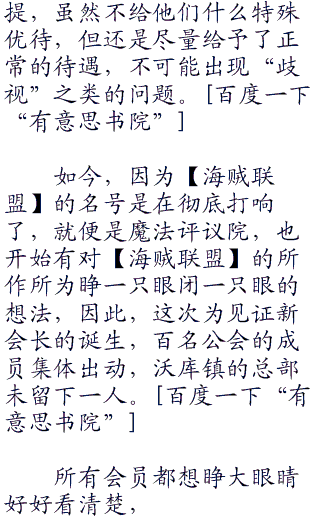 提，虽然不给他们什么特殊
优待，但还是尽量给予了正
常的待遇，不可能出现“歧
视”之类的问题。[百度一下
“有意思书院”]
如今，因为【海贼联
盟】的名号是在彻底打响
了，就便是魔法评议院，也
开始有对【海贼联盟】的所
作所为睁一只眼闭一只眼的
想法，因此，这次为见证新
会长的诞生，百名公会的成
员集体出动，沃库镇的总部
未留下一人。[百度一下“有
意思书院”]
所有会员都想睁大眼睛
好好看清楚，